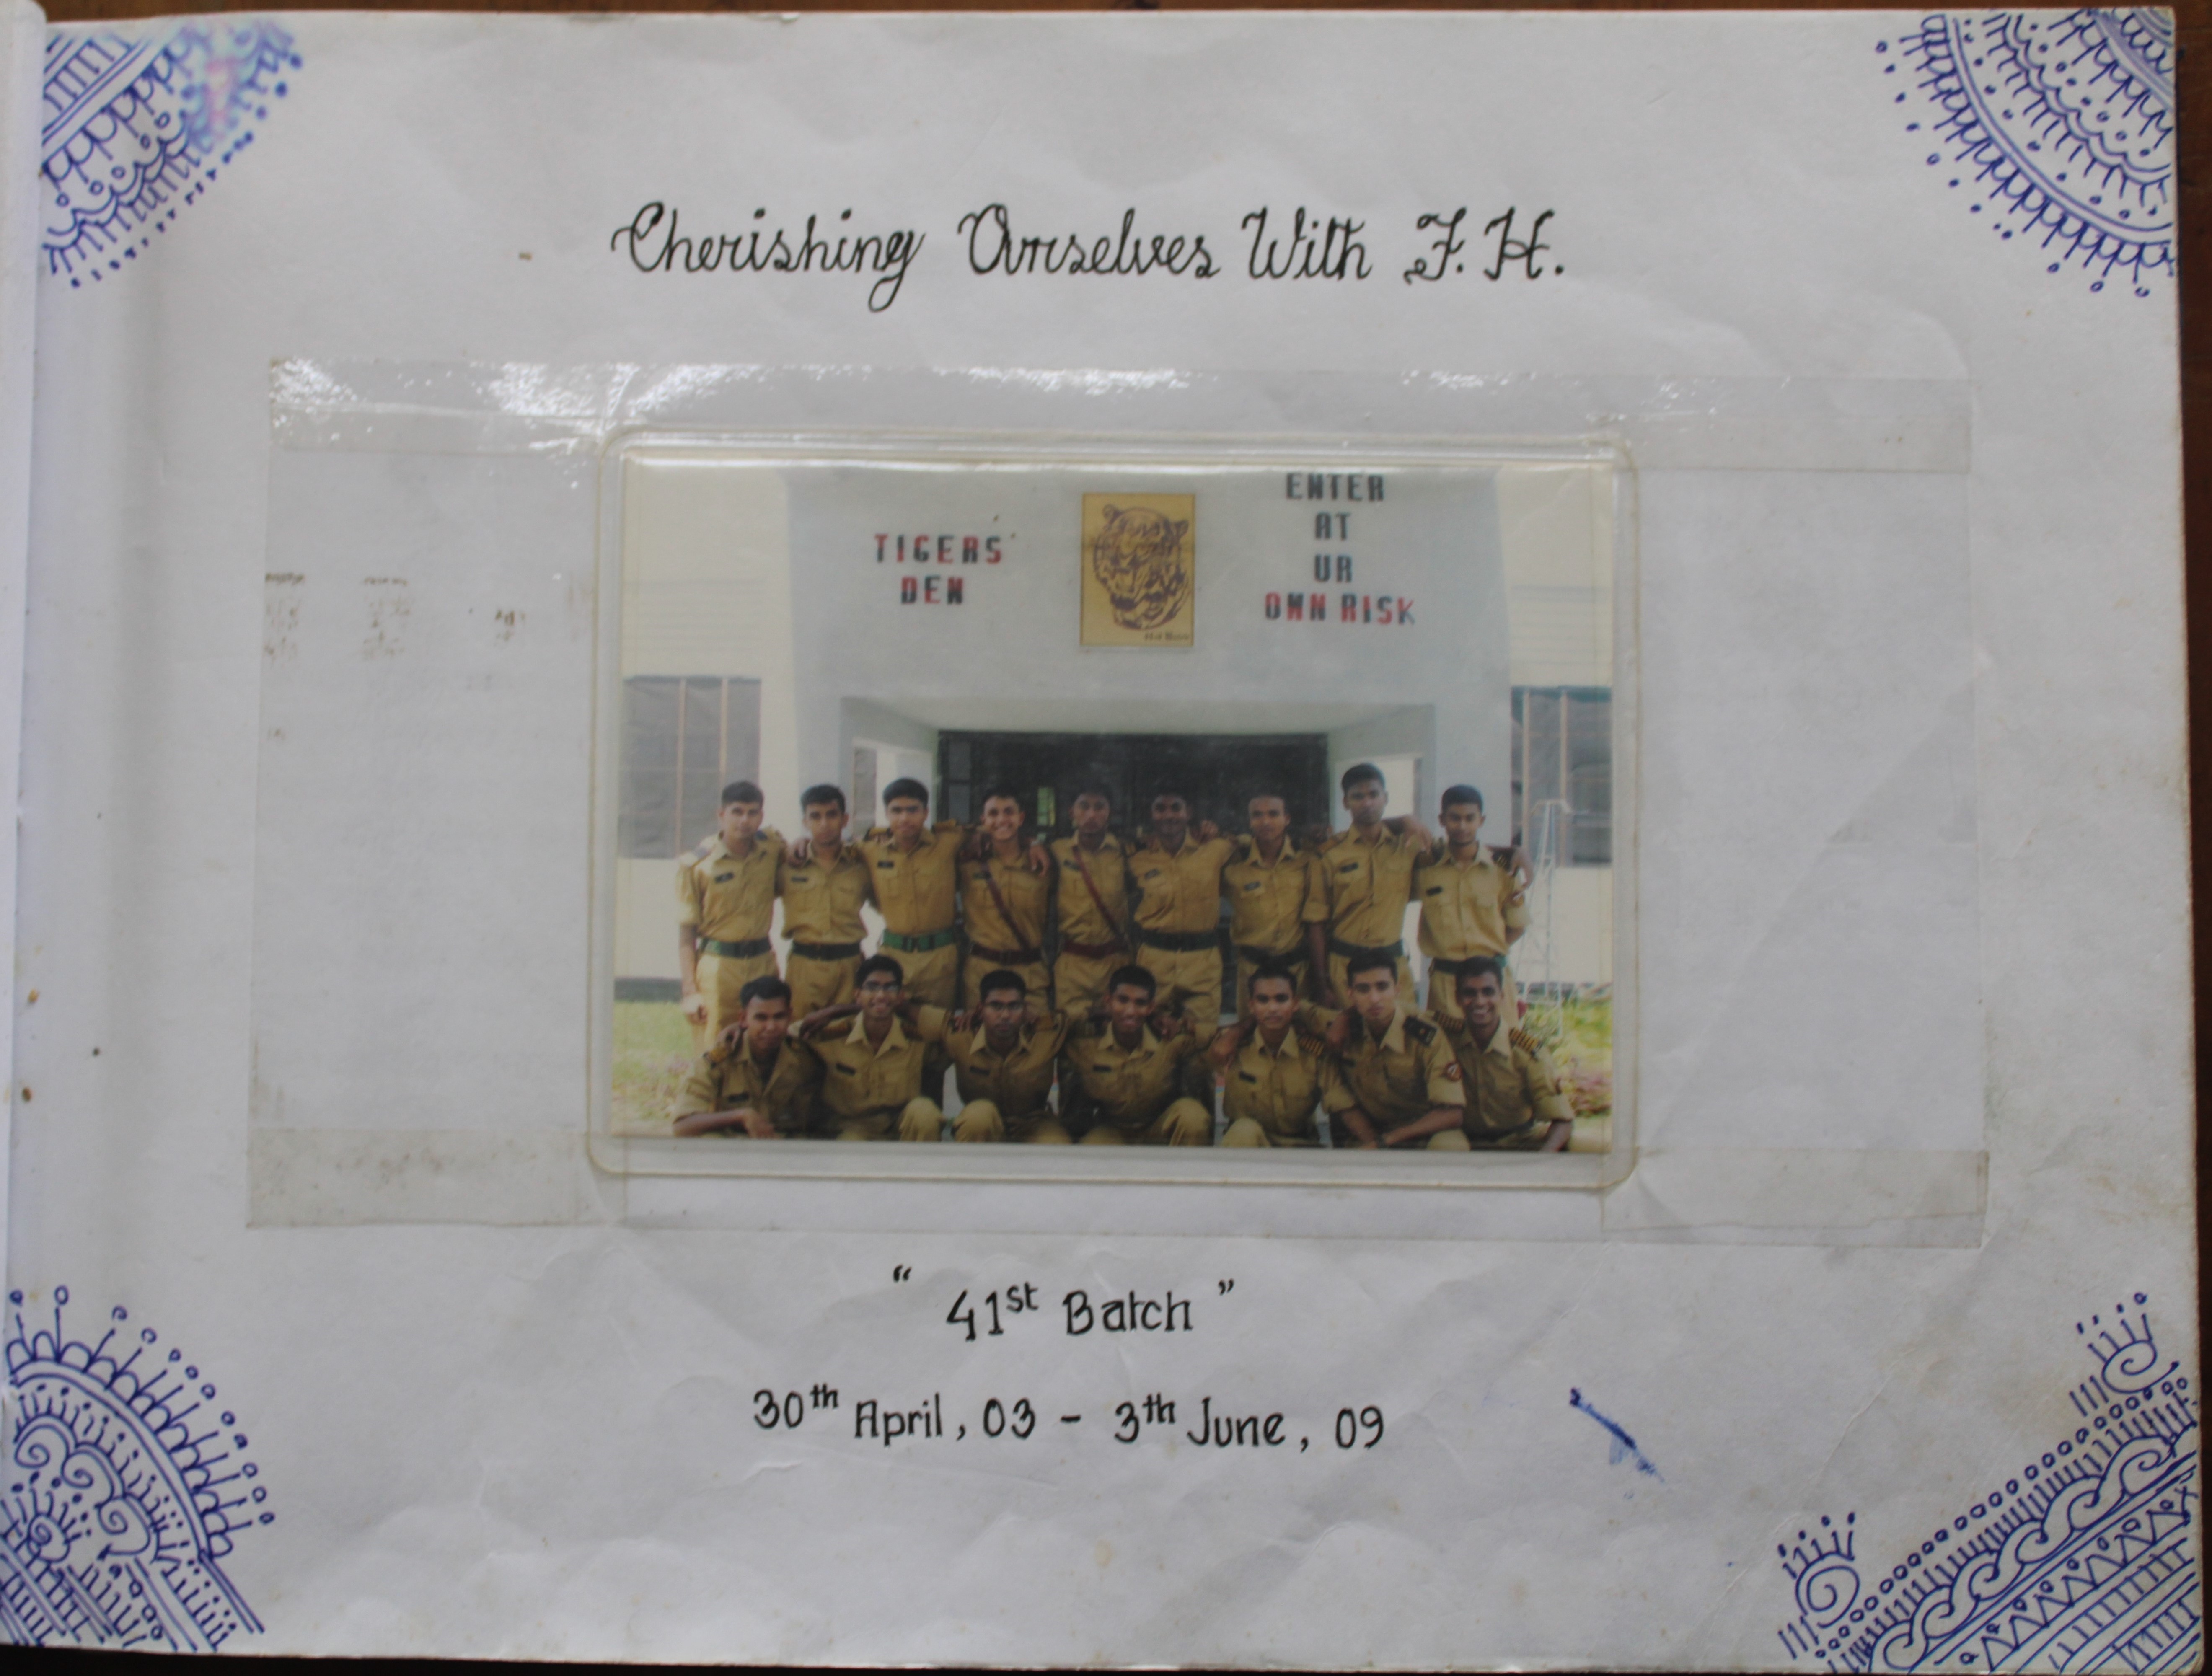 Cherishing Ourselves With F.H.
TIGERS'
DEN
ENTER
AT
UR
OWN RISK
" 41st Batch "
30th April, 03 - 3th June, 09